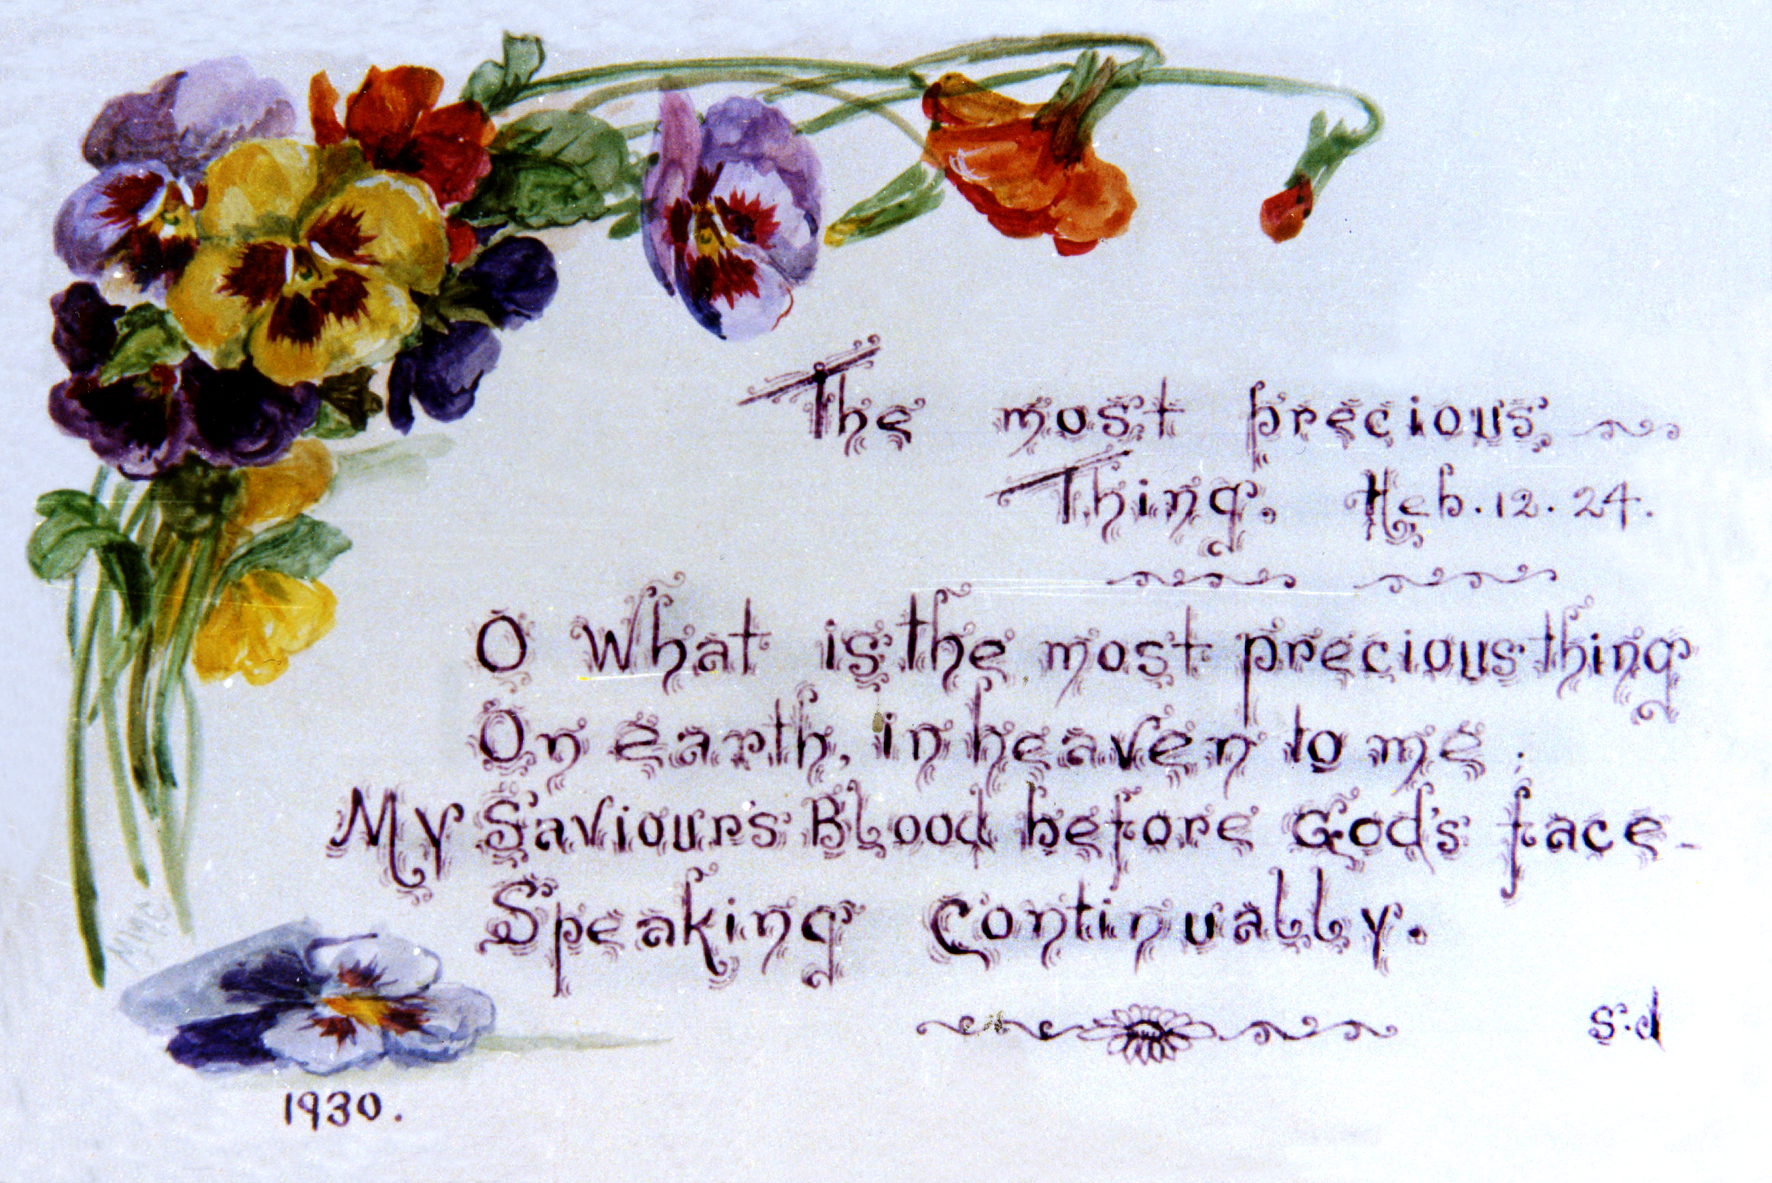 The most precious
Thing. Heb. 12. 24.
O What is the most precious thing
On earth, in heaven to me;
My Saviours Blood before God's face-
Speaking Continually.
s.d
1930.